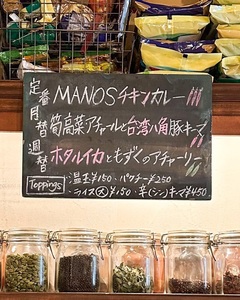 定番 MANOSチキンカレー
月替 筍高菜アチャールと台湾八角豚キーマ
週替 ホタルイカともずくのアチャーリー
Toppings ・温玉¥150 ・パクチー¥250
・ライス大¥150 ・辛(シン)キーマ¥450